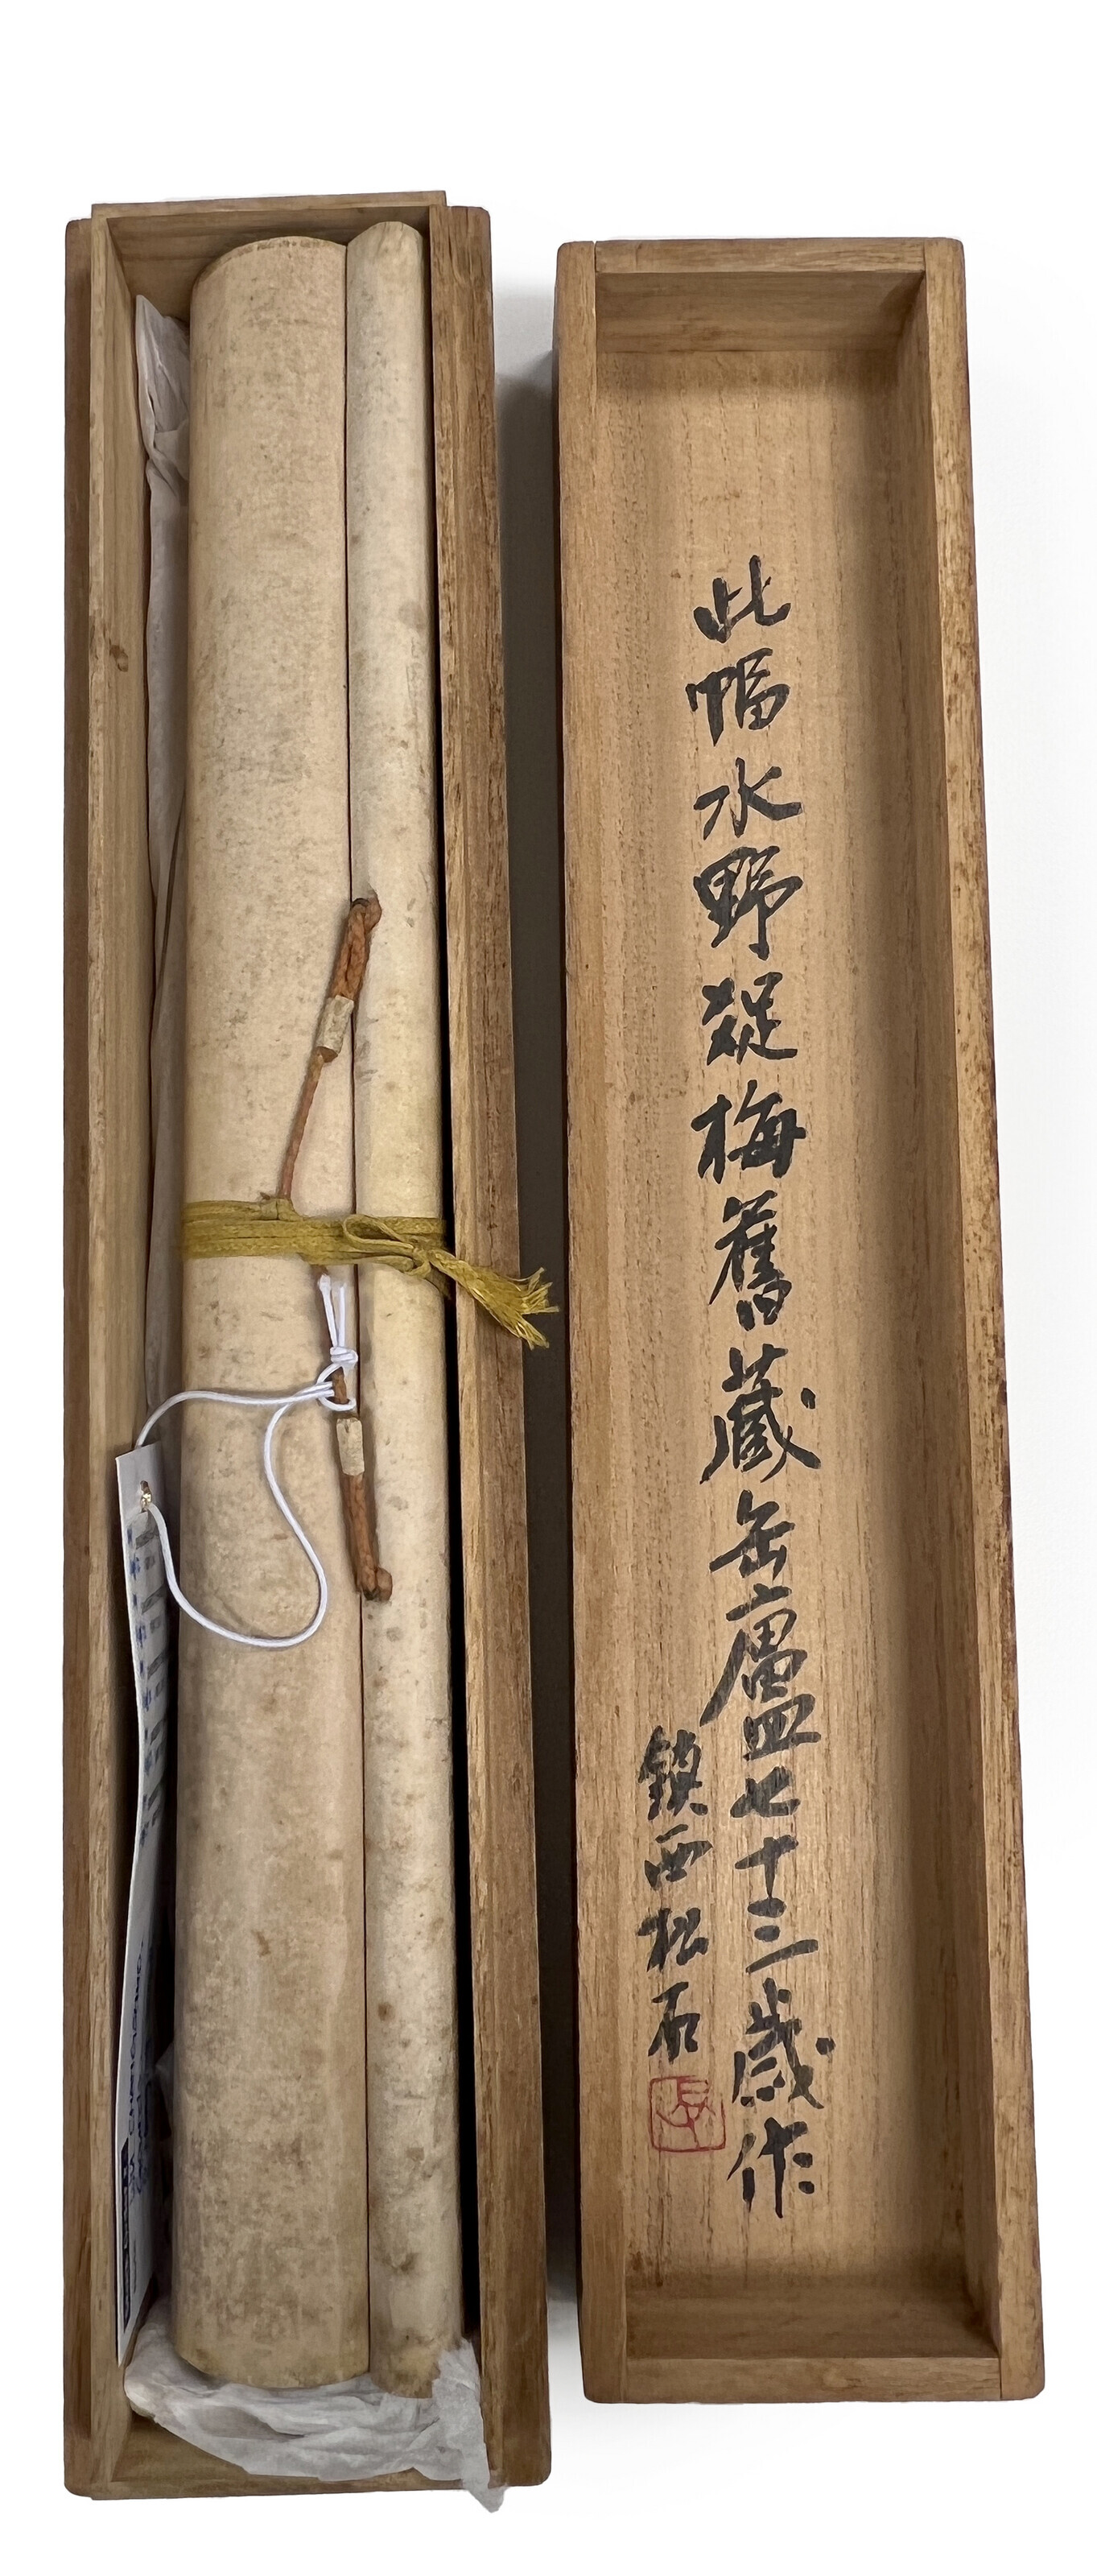 此幅水野疎梅舊藏缶廬七十三歲作
鎮西松石